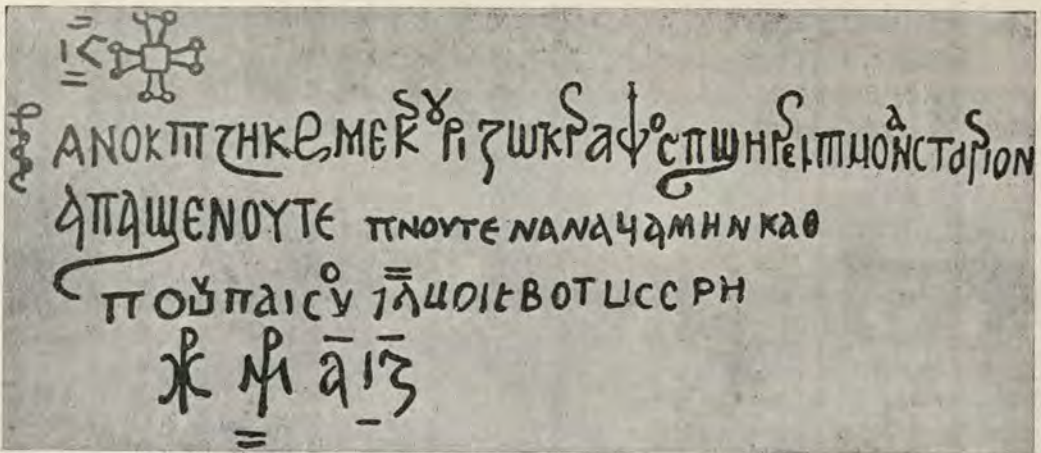 ⲓ̅ⲥ̅
ⲁⲛⲟⲕⲡⲧϩⲏⲕⲉⲙⲉⲣⲕⲟⲩⲣⲓ ⲍⲱⲕⲣⲁⲫⲟⲥⲡϣⲏⲣⲉⲓⲡⲙⲟⲛⲁⲥⲧⲏⲣⲓⲟⲛ
ⲁⲡⲁϣⲉⲛⲟⲩⲧⲉ ⲡⲛⲟⲩⲧⲉⲛⲁⲛⲁϥⲁⲙⲏⲛⲕⲁⲑ
ⲡⲟⲩ ⲡⲁⲓⲥⲟⲩ ⲓ̅ⲗ̅ ⲙⲟⲓⲉⲃⲟⲧ
ⲁ̅ ⲓ̅ⲍ̅